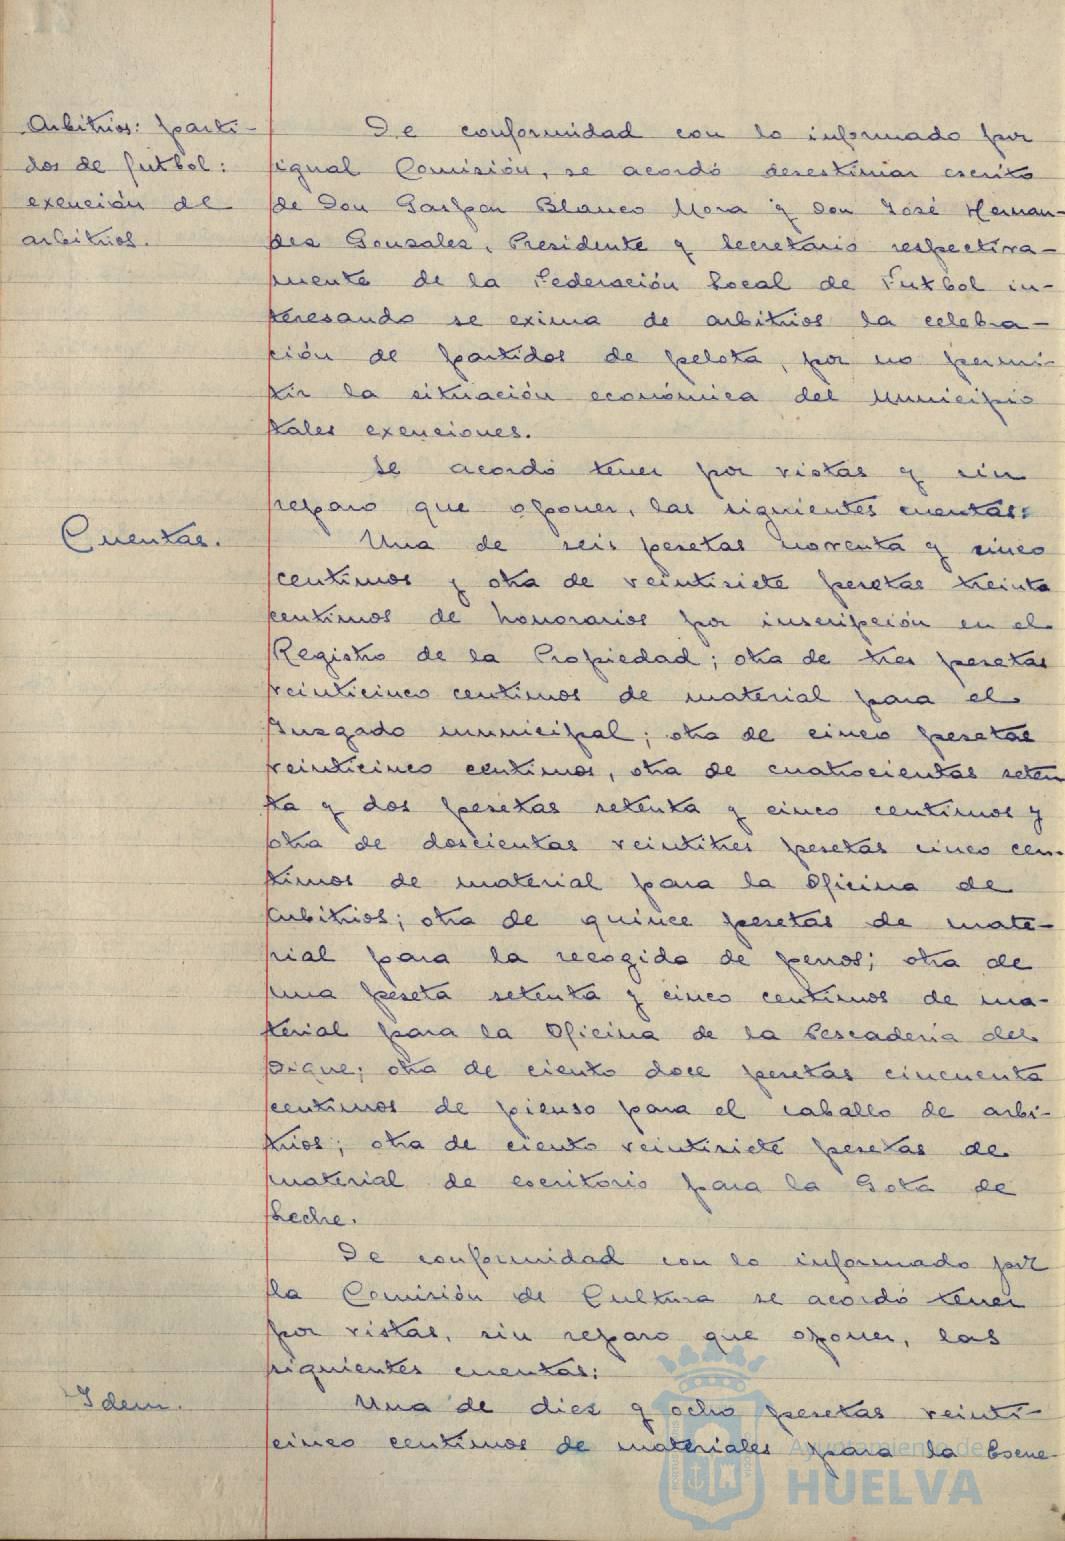 Arbitrios: parti-
dos de futbol:
exención de
arbitrios.
De conformidad con lo informado por
igual Comisión, se acordó desestimar escrito
de Don Gaspar Blanco Mora y Don José Hernan-
dez Gonzales, Presidente y Secretario respectiva-
mente de la Federación Local de Futbol in-
teresando se exima de arbitrios la celebra-
ción de partidos de pelota, por no permi-
tir la situación económica del Municipio
tales exenciones.
Se acordó tener por vistas y sin
reparo que oponer, las siguientes cuentas:
Cuentas.
Una de seis pesetas noventa y cinco
centimos y otra de veintisiete pesetas treinta
centimos de honorarios por inscripción en el
Registro de la Propiedad; otra de tres pesetas
veinticinco centimos de material para el
Juzgado municipal; otra de cinco pesetas
veinticinco centimos, otra de cuatrocientas seten
ta y dos pesetas setenta y cinco centimos y
otra de doscientas veintitres pesetas cinco cen-
timos de material para la Oficina de
Arbitrios; otra de quince pesetas de mate-
rial para la recogida de perros; otra de
una peseta setenta y cinco centimos de ma-
terial para la Oficina de la Pescaderia del
Dique; otra de ciento doce pesetas cincuenta
centimos de pienso para el caballo de arbi-
trios; otra de ciento veintisiete pesetas de
material de escritorio para la Gota de
Leche.
De conformidad con lo informado por
la Comisión de Cultura se acordó tener
por vistas, sin reparo que oponer, las
siguientes cuentas:
Idem.
Una de diez y ocho pesetas veinti-
cinco centimos de materiales para la Escue-
Ayuntamiento de
HUELVA